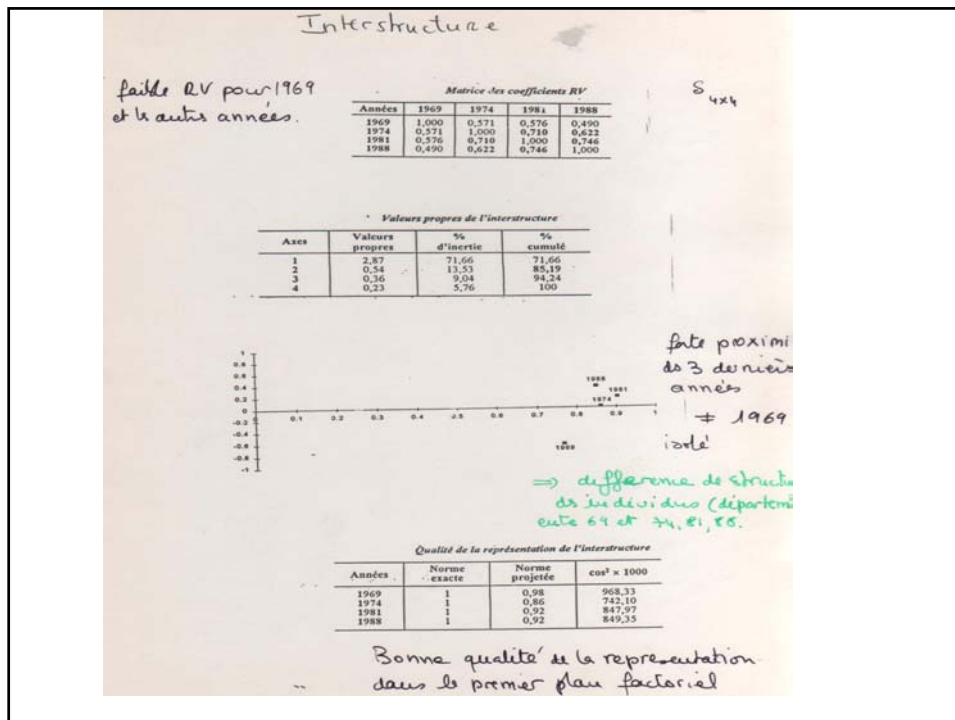 Interstructure
faible RV pour 1969
et ls autrs années.
S 4x4
Matrice des coefficients RV
Années 1969 1974 1981 1988
1969 1,000 0,571 0,576 0,490
1974 0,571 1,000 0,710 0,622
1981 0,576 0,710 1,000 0,746
1988 0,490 0,622 0,746 1,000
Valeurs propres de l'interstructure
Axes Valeurs propres % d'inertie % cumulé
1 2,87 71,66 71,66
2 0,54 13,53 85,19
3 0,36 9,04 94,24
4 0,23 5,76 100
forte proximi
ds 3 derniers
années
≠ 1969
isolé
1
0.8
0.6
0.4
0.2
0
-0.2
-0.4
-0.6
-0.8
-1
0 0.1 0.2 0.3 0.4 0.5 0.6 0.7 0.8 0.9 1
1988
1981
1974
1969
=> différence de structu
ds individus (départem
entre 69 et 74, 81, 88.
Qualité de la représentation de l'interstructure
Années Norme exacte Norme projetée cos² × 1000
1969 1 0,98 968,33
1974 1 0,86 742,10
1981 1 0,92 847,97
1988 1 0,92 849,35
Bonne qualité de la representation
dans le premier plan factoriel